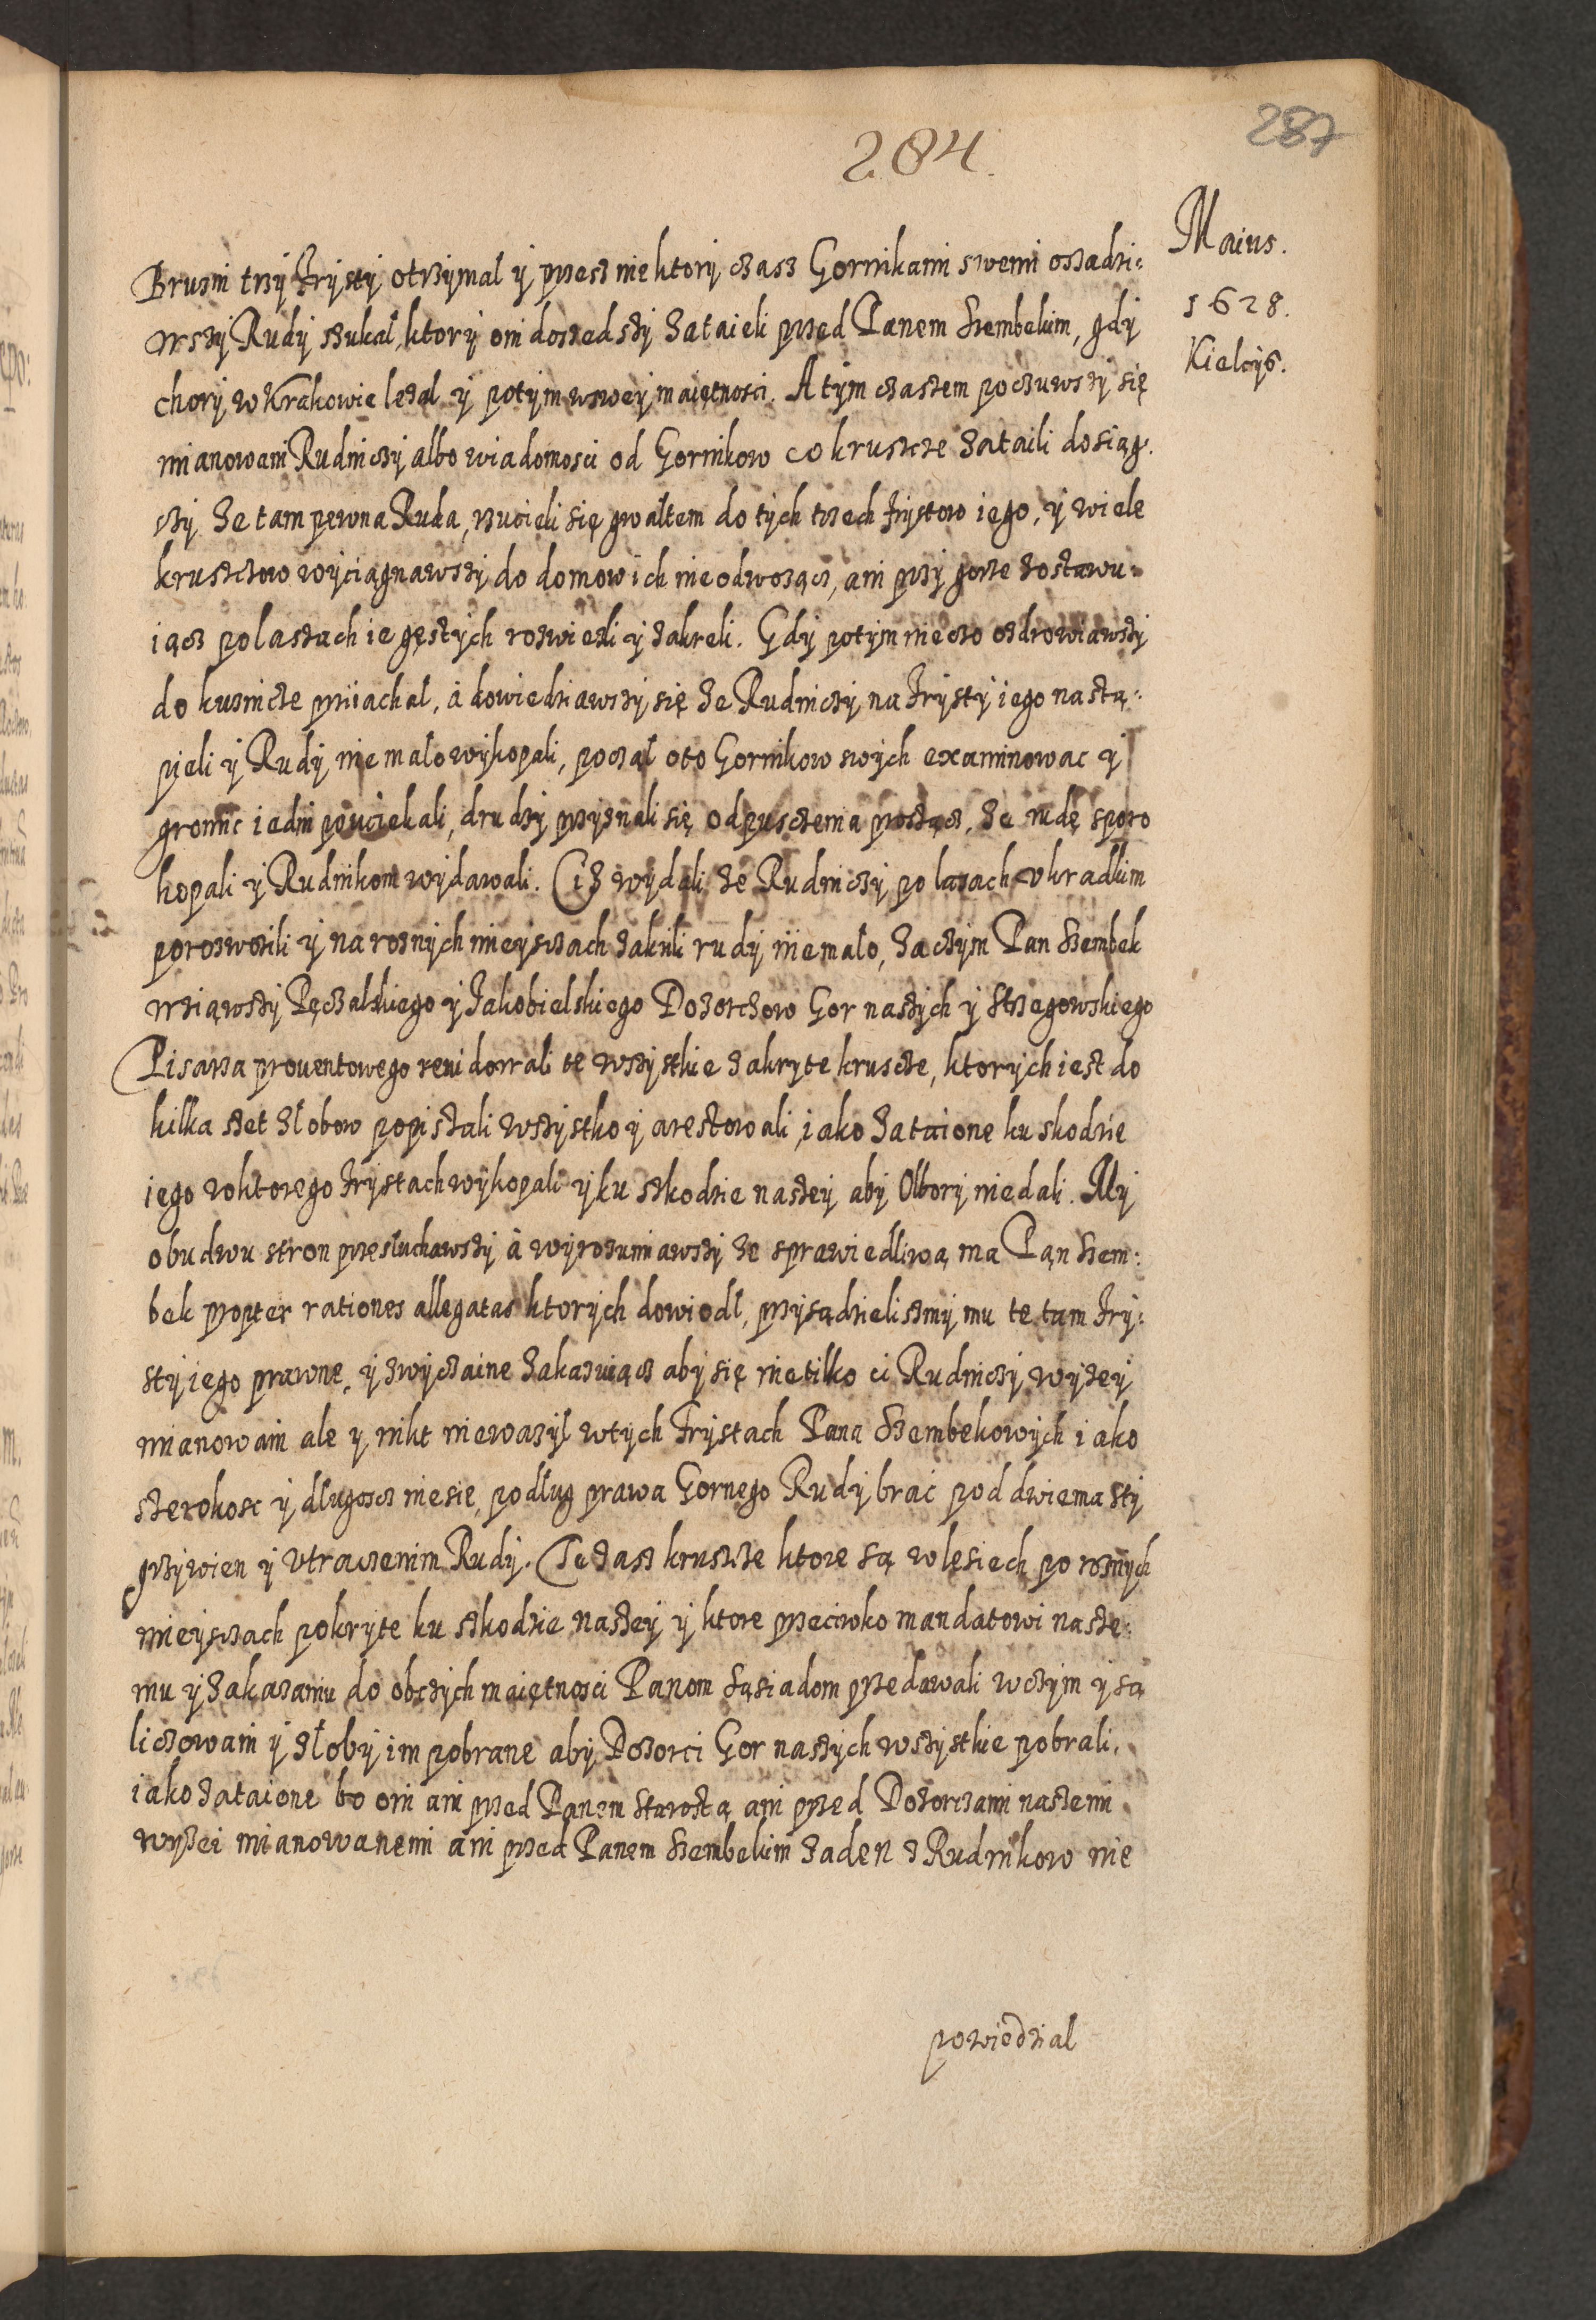 284.
287
Maius.
1628.
Kielcÿs.
Brusni trzÿ Frÿstÿ otrzÿmal ÿ przesz niektorÿ czasz Gornikami swemi oszadzi:
wszÿ Rudÿ szukal, ktorÿ oni doszedszÿ Zataieli przed Panem Szembekiem, gdÿ
chorÿ w Krakowie lezal ÿ potÿm wswoÿ maiętnosci. A tÿm czaszem poczuwszÿ się
mianowani Rudniczÿ albo wiadomosci od Gornikow co kruszcze Zataili dosiąg
szÿ ze tam pewna Ruda, rzucieli się gwaltem do tÿch trzech Frÿstow iego, ÿ wiele
kruszczow wÿciągnawszÿ do domow ich nie odwoząc, ani przÿ gorze zostawu:
iącz po laszach ie gęstÿch rozwiezli ÿ zakreli. Gdÿ potÿm nieco ozdrowiawszÿ
do kuznicze przÿiachal, à dowiedziawszÿ się ze Rudniczÿ na Frÿstÿ iego nastą:
pieli ÿ Rudÿ nie malo wÿkopali, poczal oto Gornikow swÿch examinowac ÿ
gromic iedni pouciekali, drudzÿ przÿznali się odpuszczenia proszącz, ze rudę sporo
kopali ÿ Rudnikom wÿdawali. Ciz wÿdali ze Rudniczÿ po lasach vkradkim
porozwozili ÿ na roznÿch mieÿscach zakrili rudÿ niemalo, Zaczÿm Pan Szembek
wziąwszÿ Pęczalskiego ÿ Jakobielskiego Dozorczow Gor naszÿch ÿ Strzegowskiego
Pisarza prouentowego reuidowali te wszÿstkie zakryte kruscze, ktorÿch iest do
kilka szet Złobow popiszali wszÿstko ÿ arestowali, iako Zataione ku skodzie
iego wktorego Frÿstach wÿkopali ÿ ku szkodzie naszeÿ abÿ Olborÿ niedali. Mÿ
obudwu stron przesłuchawszÿ à wÿrozumiawszÿ ze sprawiedliwą ma Pan Szem:
bek propter rationes allegatas ktorÿch dowiodl, przÿsądzielismÿ mu te tam Frÿ:
stÿ iego prawne, ÿ zwÿczaine zakazuiącz abÿ się nie tilko ci Rudniczÿ wÿzeÿ
mianowani ale y nikt niewazÿl wtÿch Frÿstach Pana Szembekowÿch iako
szerokosc ÿ dlugoscz niesie, podlug prawa Gornego Rudÿ brac pod dwiema stÿ
grzÿwien ÿ vtraczenim Rudÿ. Te zasz kruszcze ktore są w lesiech po roznÿch
mieÿscach pokryte ku szkodzie naszeÿ ÿ ktore przeciwko mandatowi nasze:
mu ÿ zakazaniu do obczÿch maiętnosci Panom Sąsiadom przedawali wczÿm ÿ są
liczowani ÿ złobÿ im pobrane abÿ Dozorci Gor naszÿch wszÿstkie pobrali,
iako zataione bo oni ani przed Panem Starostą ani przed Dozorczami naszemi
wyszei mianowanemi ani przed Panem Szembekim zaden z Rudnikow nie
powiedzial